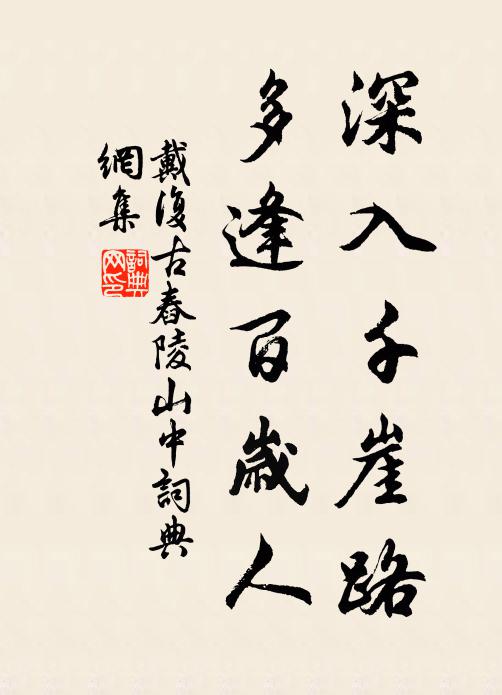 深入千崖路
多逢百歲人
戴復古舂陵山中詞典
網集
詞典
网印